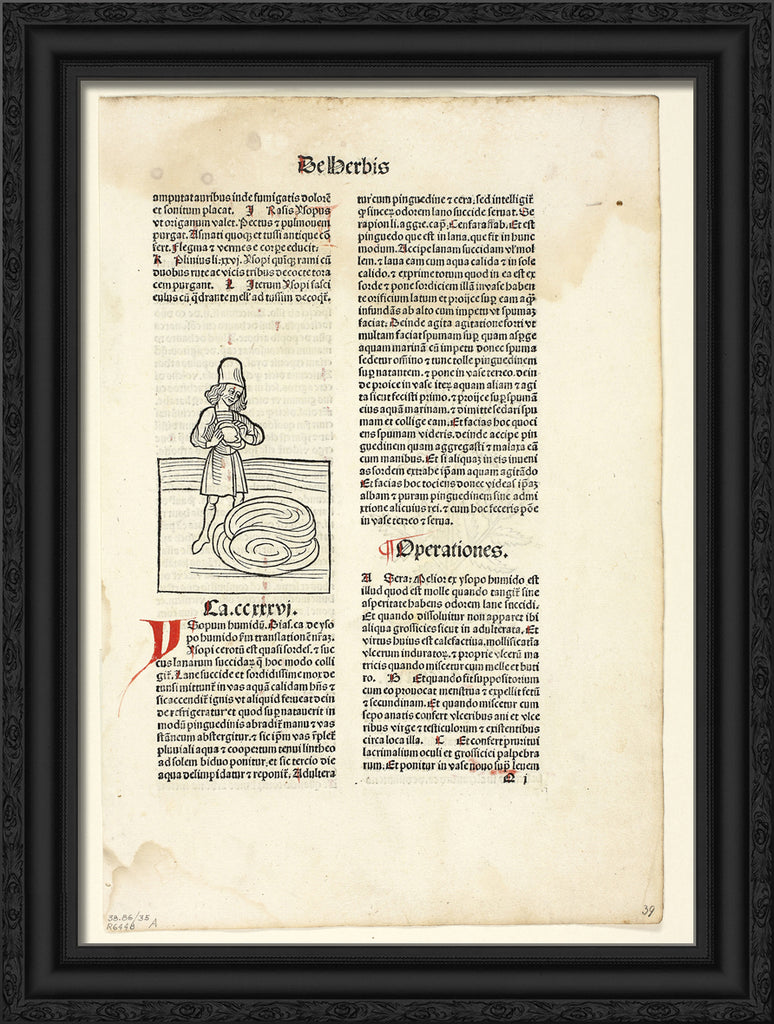 De Herbis
amputat auribus inde fumigatis dolorē
et sonitum placat. J Rasis Ysopus
vt origanum valet. Pectus & pulmonem
purgat. Asmati quoqꝫ et tussi antique cō
fert. Flegma & vermes e corpe educit.
K Plinius li. xxvj. Ysopi quīqꝫ rami cū
duobus rute ac vicis tribus decocte tora
cem purgant. L Iterum Ysopi fasci
culus cū q̄drante mell' ad tussim decoq̄t.
Ca. ccxxxvj.
YSopum humidū. Dias. ca. de yso
po humido fm translationē nr̄aꝫ.
Ysopi cerotū est quasi sordes. & suc
cus lanarum succidaꝝ q̄ hoc modo colli
git̄. Lane succide et sordidissime mox de
tunsi mittunt̄ in vas aquā calidam hn̄s &
sic accendit̄ ignis vt aliquid ferueat dein
de refrigeratur et quod sup̄natauerit in
modū pinguedinis abradit̄ manu & vas
stāneum abstergitur. & sic ip̄m vas īplet̄
pluuiali aqua & coopertum tenui lintheo
ad solem biduo ponitur. et sic tercio die
aqua delimpidatur & reponit̄. Adultera
tur cum pinguedine & cera. sed intelligit̄
q̄ sinceꝝ odorem lano succide seruat. Se
rapion li. aggre. cap̄. Cenfaraffab. Et est
pinguedo que est in lana. que fit in hunc
modum. Accipe lanam succidam vl' mol
lem. & laua eam cum aqua calida & in sole
calido. & exprime totum quod in ea est ex
sorde & pone sordiciem illā in vase haben
te orificium latum et proijce sup̄ eam aq̄
infundās ab alto cum impetu vt spumaꝫ
faciat. Deinde agita agitatione forti vt
multam faciat spumam sup̄ quam asp̄ge
aquam marinā cū impetu donec spuma
sedetur om̄ino & tunc tolle pinguedinem
sup̄natantem. & pone in vase terreo. dein
de proice in vase iteꝝ aquam aliam & agi
ta sicut fecisti primo. & proijce sup̄ spumā
eius aquā marinam. & dimitte sedari spu
mam et collige eam. Et facias hoc quoci
ens spumam videris. deinde accipe pin
guedinem quam aggregasti & malaxa eā
cum manibus. Et si aliquaꝫ in eis inueni
as sordem extrahe ip̄am aquam agitādo
Et facias hoc tociens donec videas ip̄aꝫ
albam & puram pinguedinem sine admi
xtione alicuius rei. & cum hoc feceris pōe
in vase terreo & serua.
¶ Operationes.
A Sera. Pelio: ex ysopo humido est
illud quod est molle quando tangit̄ sine
asperitate habens odorem lane succidi.
Et quando dissoluitur non apparet ibi
aliqua grossicies sicut in adulterata. Et
virtus huius est calefactiua. mollificatīa
vlcerum induratoꝝ. & proprie vlcerū ma
tricis quando miscetur cum melle et buti
ro. B Et quando fit suppositorium
cum eo prouocat menstrua & expellit fetū
& secundinam. Et quando miscetur cum
sepo anatis confert vlceribus ani et vlce
ribus virge & testiculorum & existentibus
circa loca illa. C Et confert pruritui
lacrimalium oculi et grossiciei palpebra
rum. Et ponitur in vase nouo sup̄ leuem
Q i
39
38.86/35
R644B A